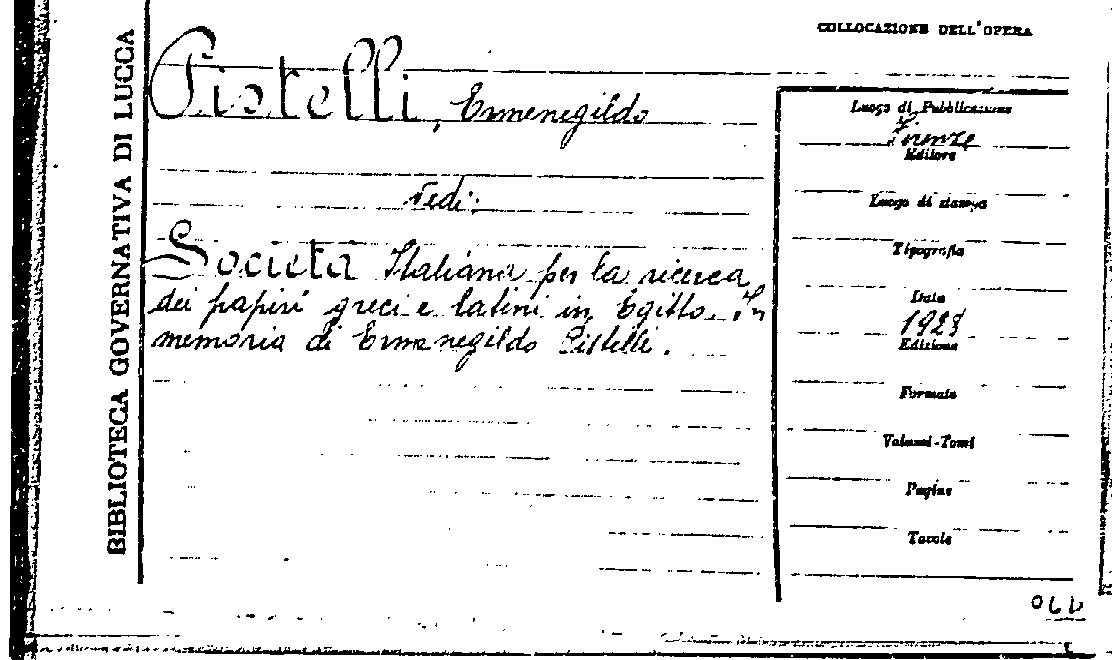 BIBLIOTECA GOVERNATIVA DI LUCCA
COLLOCAZIONE DELL'OPERA
Pistelli, Ermenegildo
Vedi:
Società Italiana per la ricerca
dei papiri greci e latini in Egitto. In
memoria di Ermenegildo Pistelli.
Luogo di Pubblicazione
Firenze
Editore
Luogo di stampa
Tipografia
Data
1928
Edizione
Formato
Volumi-Tomi
Pagine
Tavole